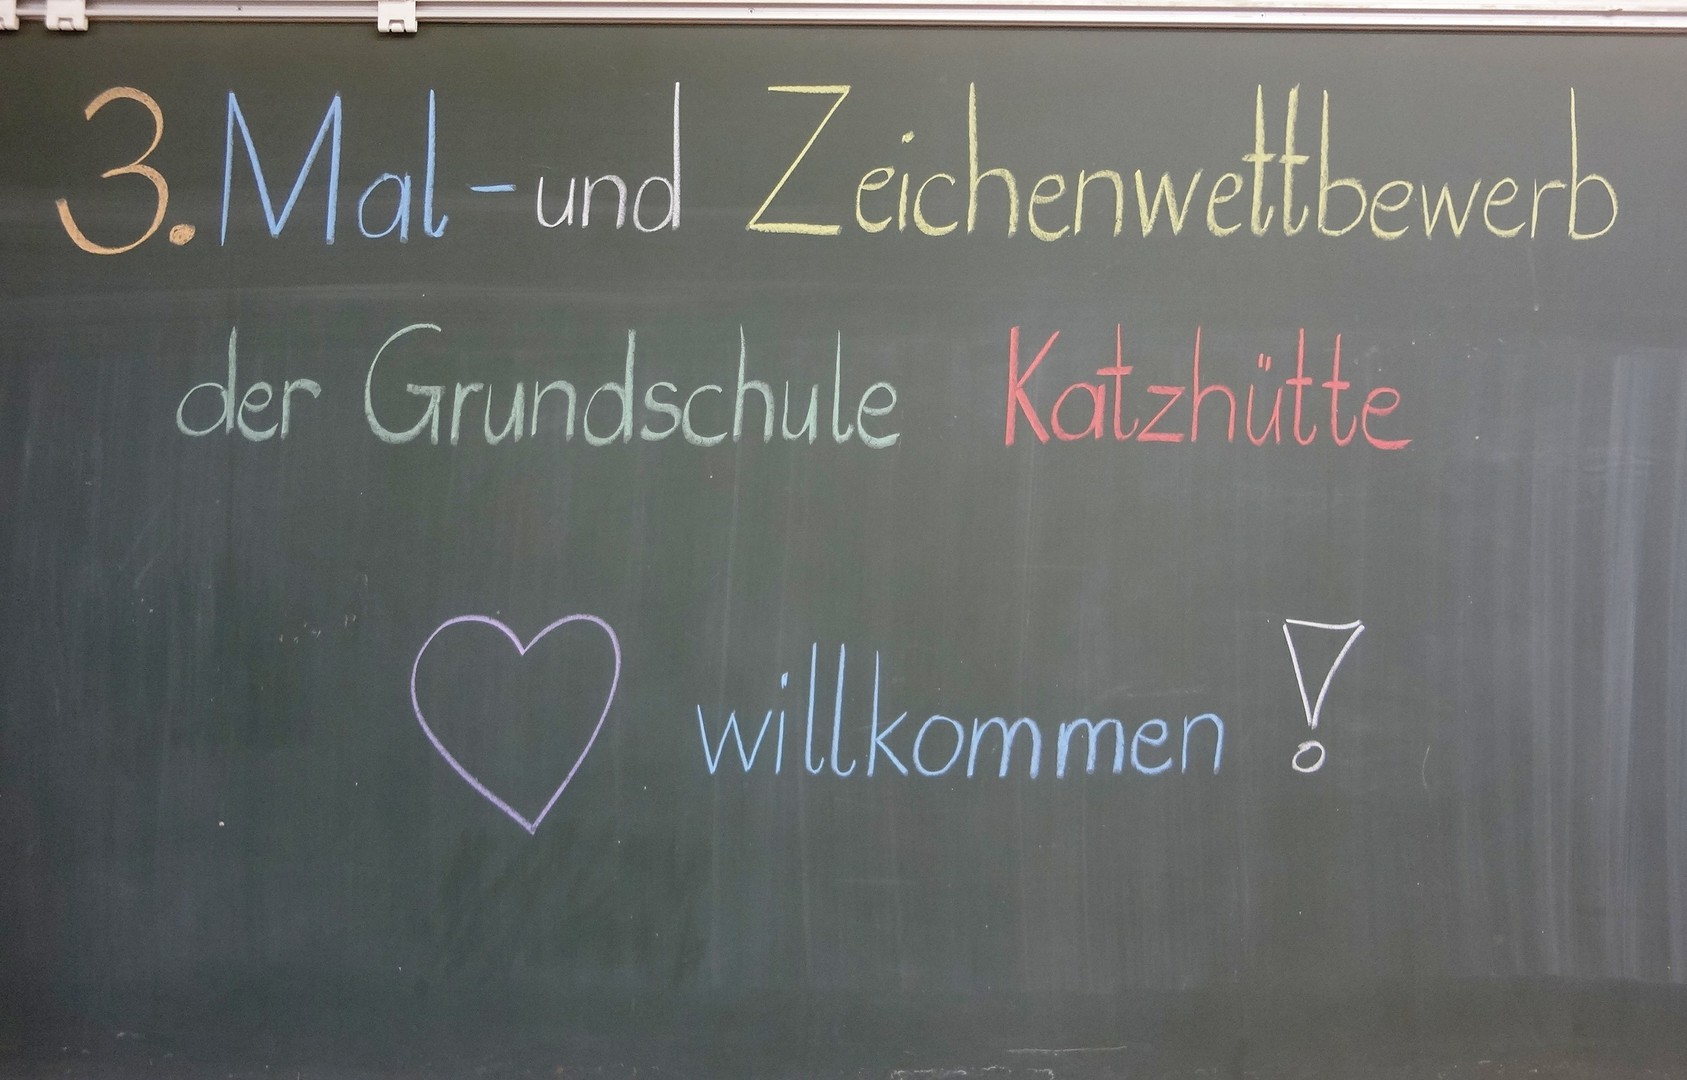 3. Mal- und Zeichenwettbewerb
der Grundschule Katzhütte
willkommen!